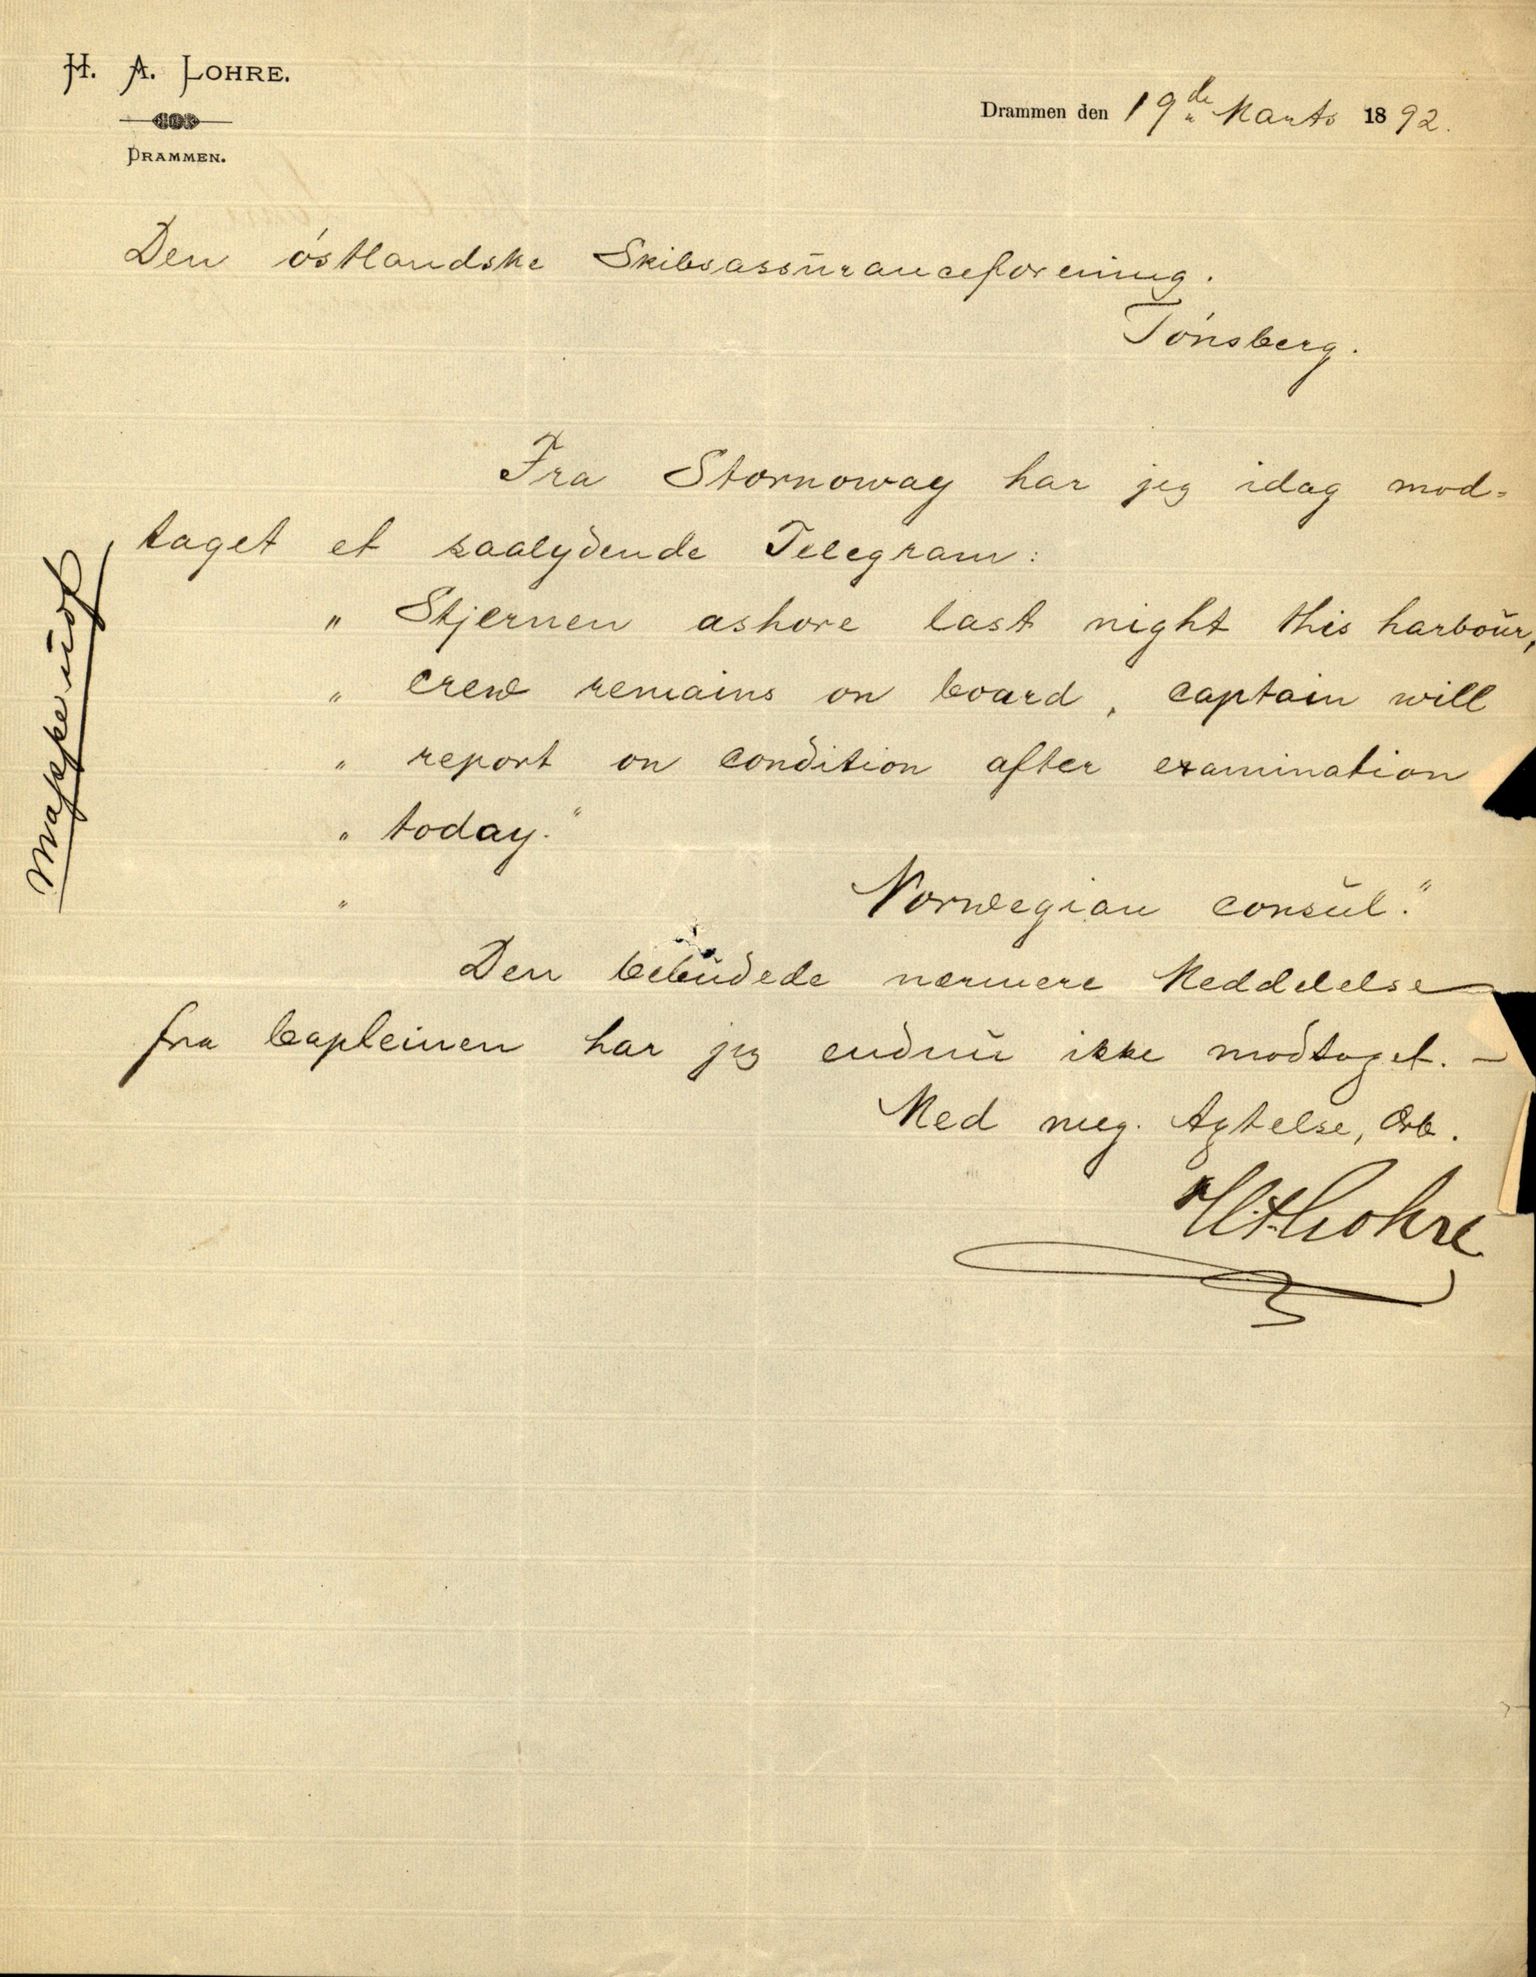 H. A. LOHRE.
DRAMMEN.
Drammen den 19de Marts 1892.
Den östlandske Skibsassuranceforening.
Tönsberg.
Fra Stornoway har jeg idag mod-
taget et saalydende Telegram:
" Stjernen ashore last night this harbour,
" crew remains on board, captain will
" report on condition after examination
" today."
" Norwegian consul."
Den bebudede nærmere Meddelelse
fra Capteinen har jeg endnu ikke modtaget. —
Med meg. Agtelse,Ærb.
H A Lohre